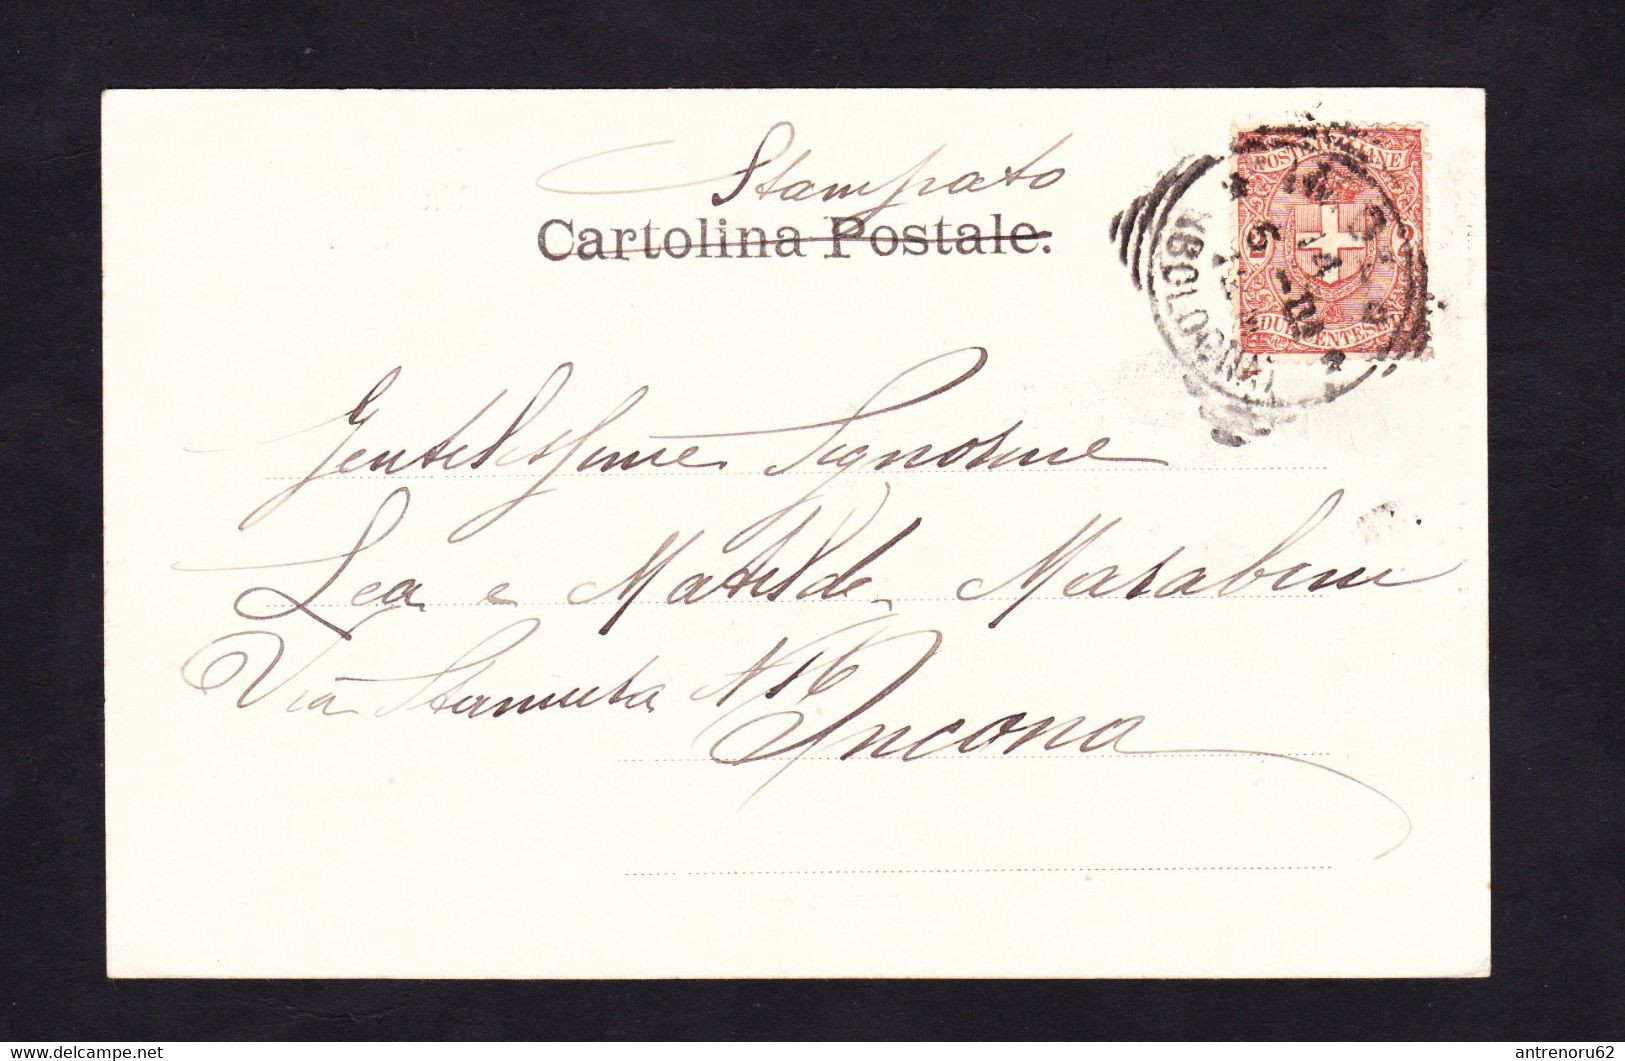 Stampato
Cartolina Postale.
POSTE ITALIANE
DUE CENTESIMI
(BOLOGNA)
Gentilissime Signorine
Lea e Matilde Marabini
Via Stamura N 16
Ancona
antrenoru62